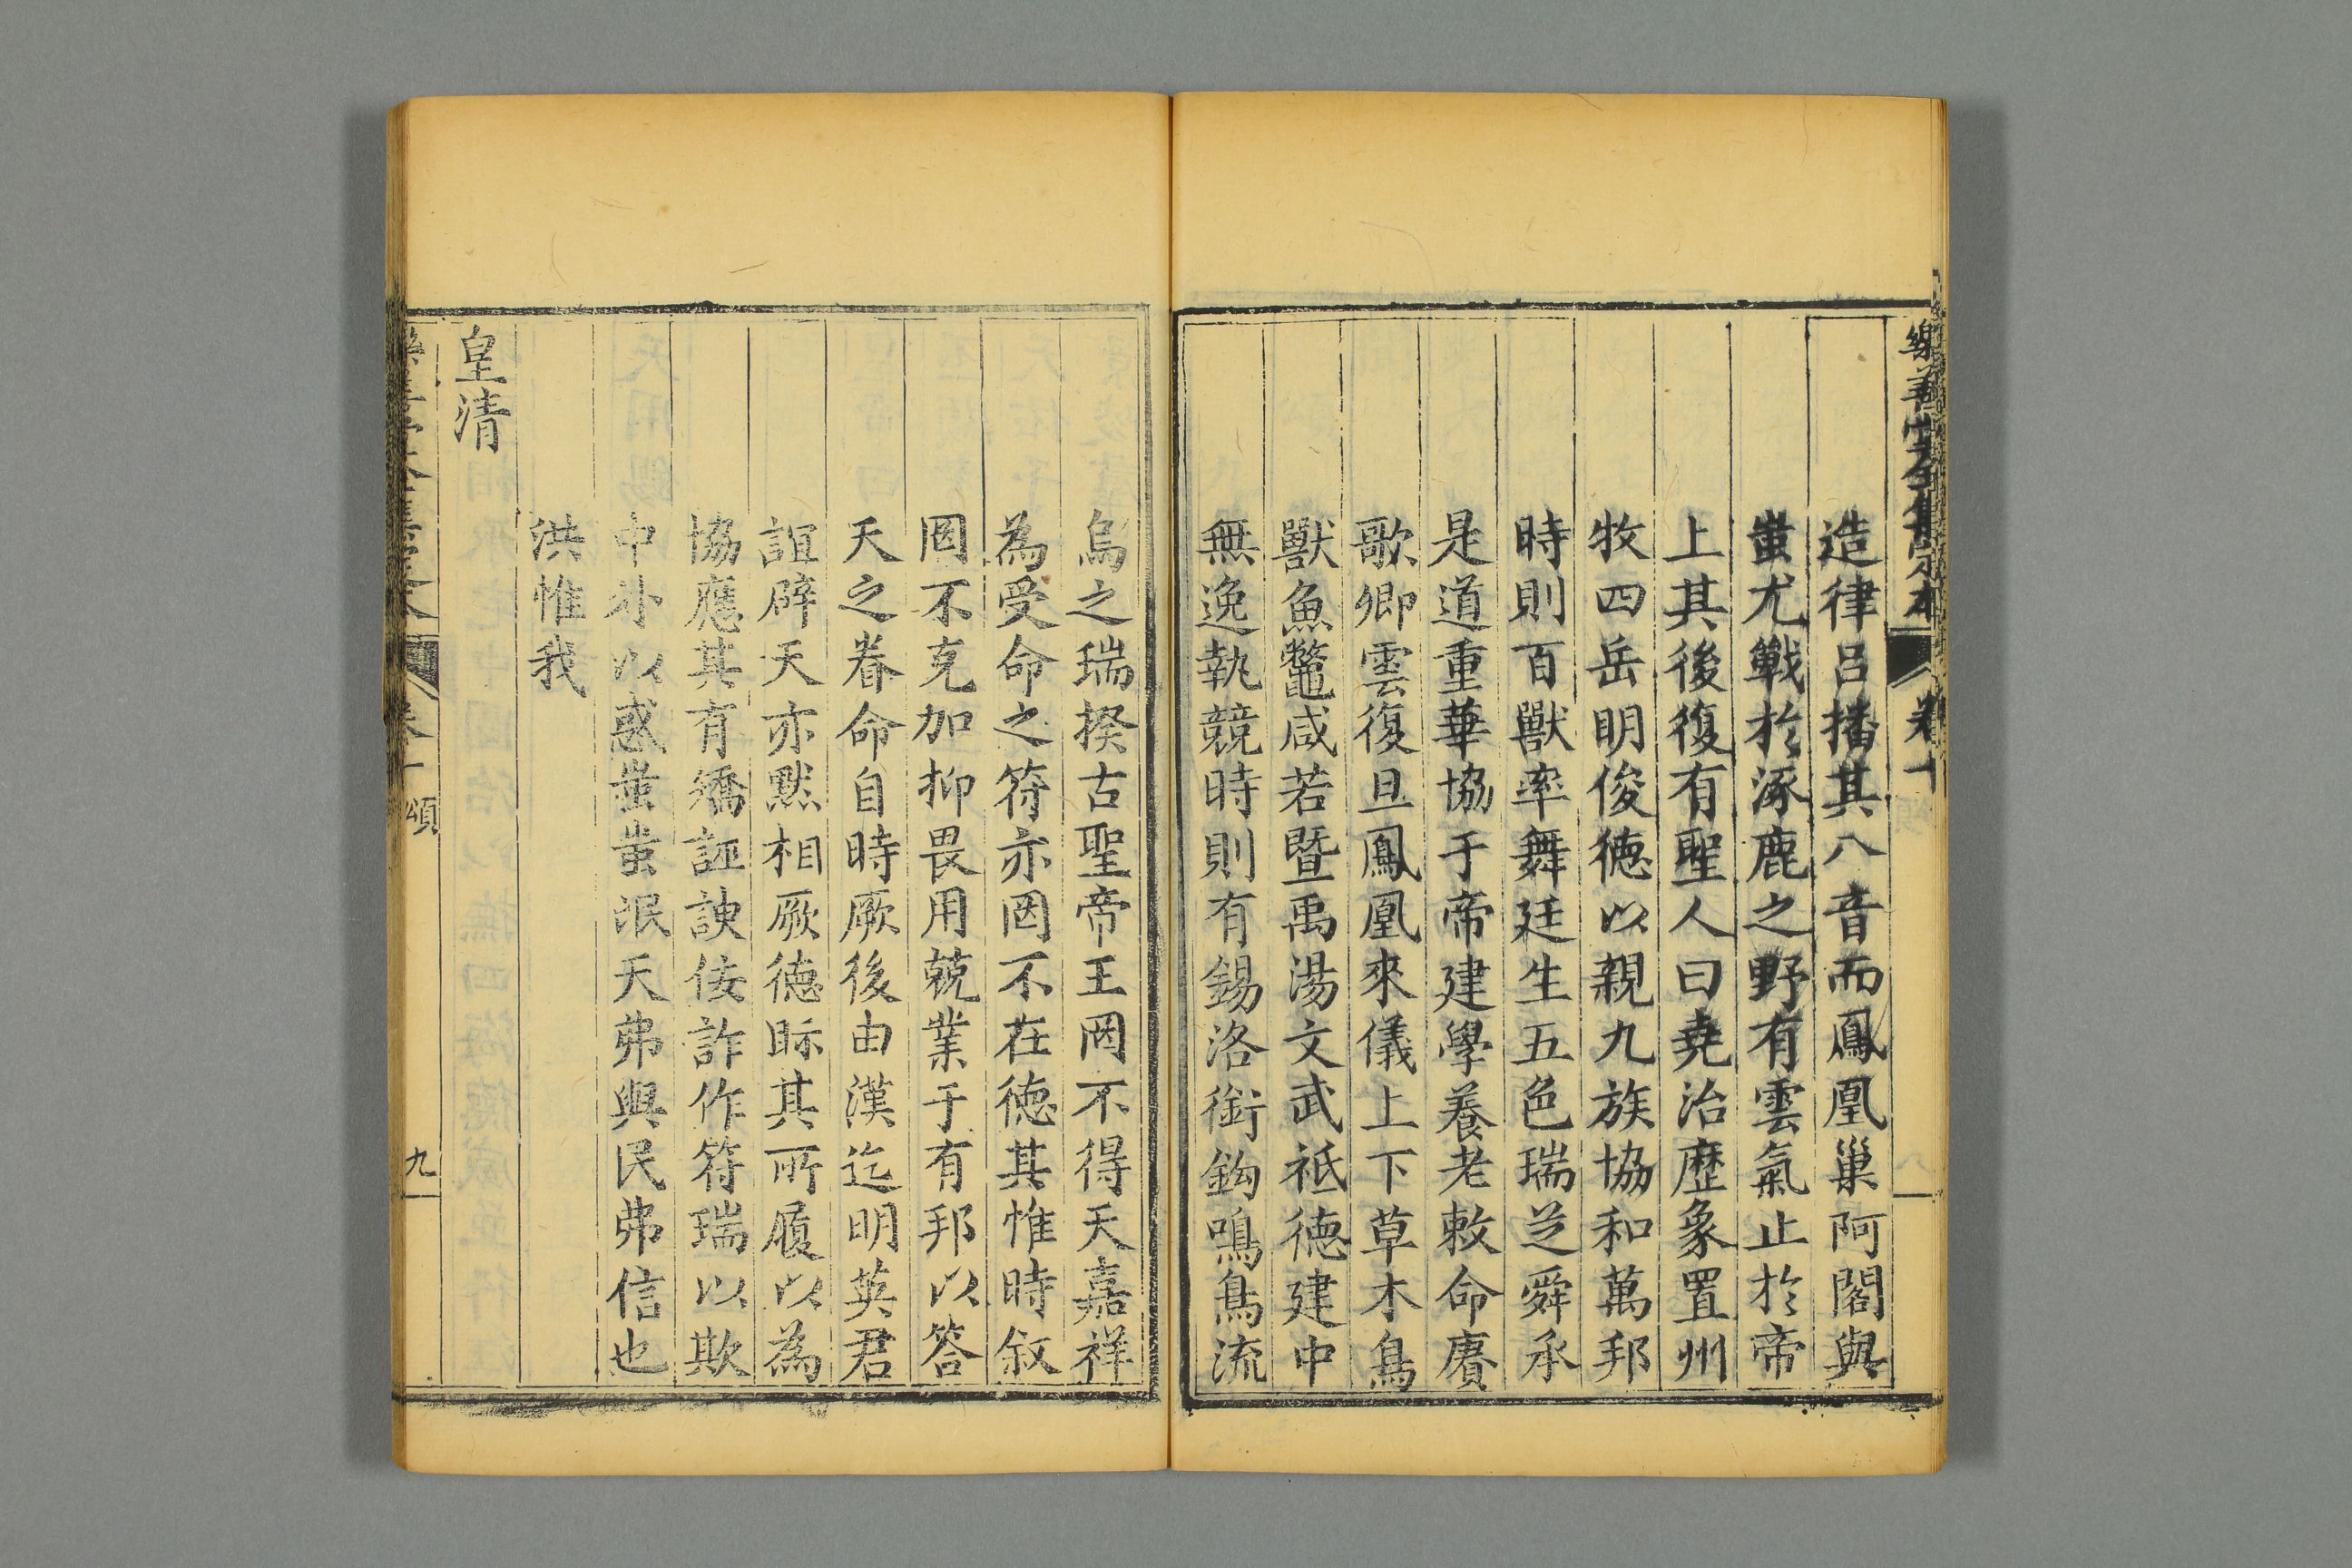 樂善堂全集定本 卷十
造律呂播其八音而鳳凰巢阿閣與
蚩尤戰於涿鹿之野有雲氣止於帝
上其後復有聖人曰堯治歷象置州
牧四岳明俊德以親九族協和萬邦
時則百獸率舞廷生五色瑞芝舜承
是道重華協于帝建學養老敕命賡
歌卿雲復旦鳳凰來儀上下草木鳥
獸魚鼈咸若暨禹湯文武祗德建中
無逸執競時則有錫洛銜鈎鳴鳥流
烏之瑞揆古聖帝王罔不得天嘉祥
為受命之符亦罔不在德其惟時敘
罔不克加抑畏用兢業于有邦以答
天之眷命自時厥後由漢迄明英君
誼辟天亦黙相厥德眎其所履以為
協應其有矯誣諛佞詐作符瑞以欺
中外以惑蚩蚩泯天弗與民弗信也
洪惟我
皇清
頌 九